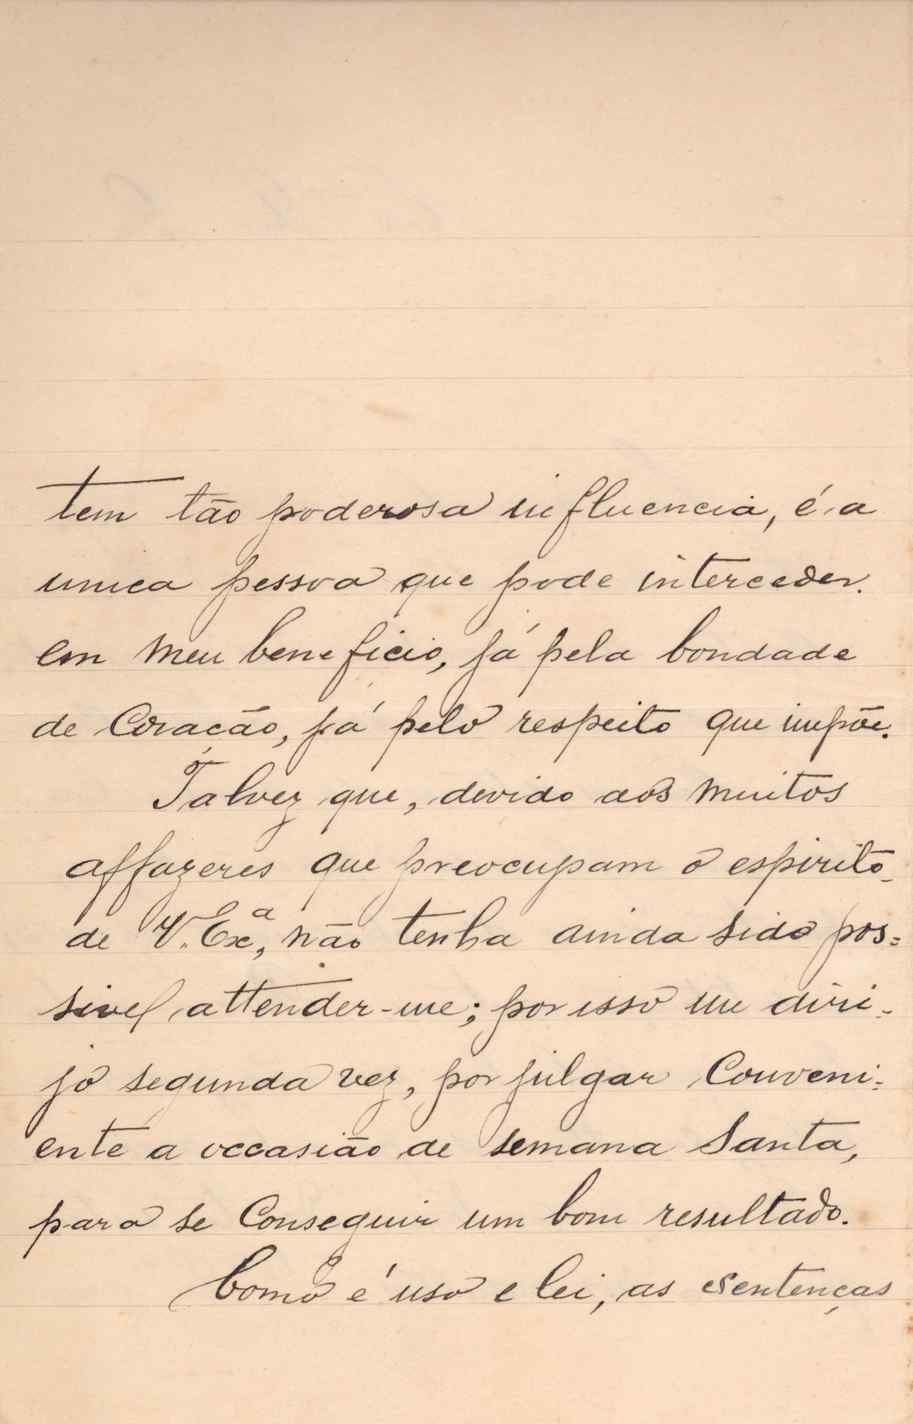 tem tão poderosa influencia, é a
unica pessoa que pode interceder
em meu beneficio, já pela bondade
de Coração, já pelo respeito que impõe.
Talvez que, devido aos muitos
affazeres que preocupam o espirito
de V. Exª, não tenha ainda sido pos=
sivel attender-me; por isso me diri-
jo segunda vez, por julgar Conveni-
ente a occasião de semana Santa,
para se Conseguir um bom resultado.
Como é uso e lei, as sentenças